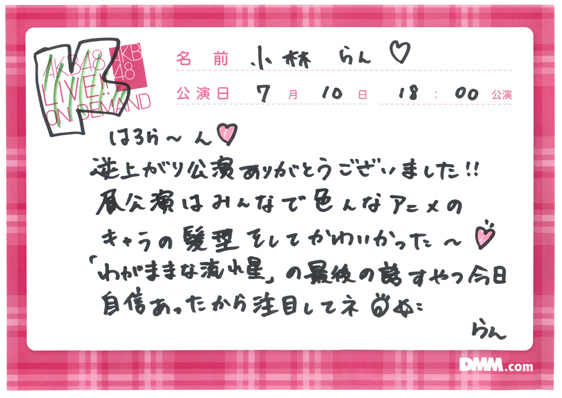 K
AKB48
LIVE!!
ON DEMAND
AKB
48
名前 小林 らん ♡
公演日 7月 10日 18:00 公演
はろら〜ん♡
逆上がり公演ありがとうございました!!
昼公演はみんなで色んなアニメの
キャラの髪型そしてかわいかった〜♡
「わがままな流れ星」の最後の話すやつ今日
自信あったから注目してネ
らん
DMM.com